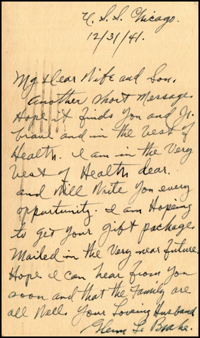 U.S.S. Chicago.
12/31/41.
My Dear Wife and Son,
Another Short Message.
Hope it finds you and Jr.
and in the best of
Health. I am in the Very
best of Health dear.
and Will Write you every
opportunity. I am Hoping
to get your gift package
Mailed in the Very near Future
Hope I can hear from you
soon and that the Family are
all Well. Your Loving Husband
Glenn